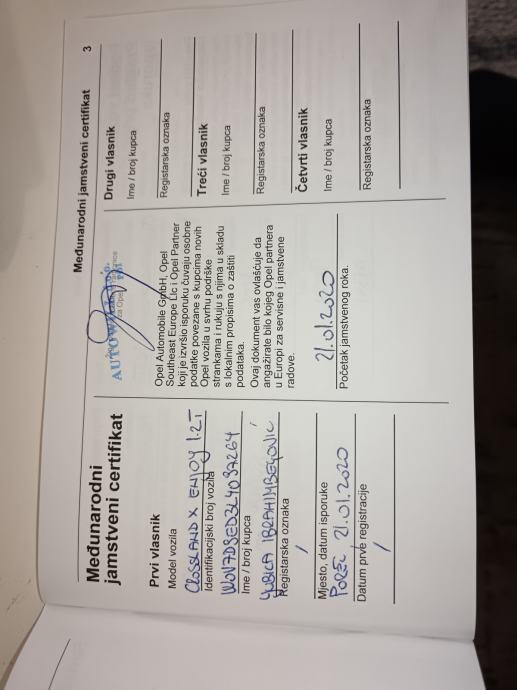 Međunarodni jamstveni certifikat 3
Međunarodni
jamstveni certifikat
Prvi vlasnik
Model vozila
CROSSLAND X ENJOY 1.2T
Identifikacijski broj vozila
Ime / broj kupca
IBRAHIMBEGOVIĆ
Registarska oznaka
/
Mjesto, datum isporuke
POREČ, 21.01.2020
Datum prve registracije
/
AUTOWILL d.o.o.
Opel Automobile GmbH, Opel
Southeast Europe Llc i Opel Partner
koji je izvršio isporuku čuvaju osobne
podatke povezane s kupcima novih
Opel vozila u svrhu podrške
strankama i rukuju s njima u skladu
s lokalnim propisima o zaštiti
podataka.
Ovaj dokument vas ovlašćuje da
angažirate bilo kojeg Opel partnera
u Europi za servisne i jamstvene
radove.
21.01.2020
Početak jamstvenog roka.
Drugi vlasnik
Ime / broj kupca
Registarska oznaka
Treći vlasnik
Ime / broj kupca
Registarska oznaka
Četvrti vlasnik
Ime / broj kupca
Registarska oznaka